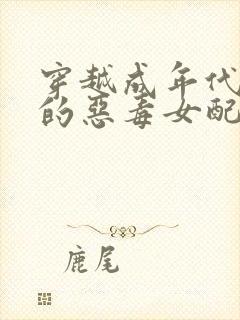 穿越成年代
的恶毒女配
鹿尾